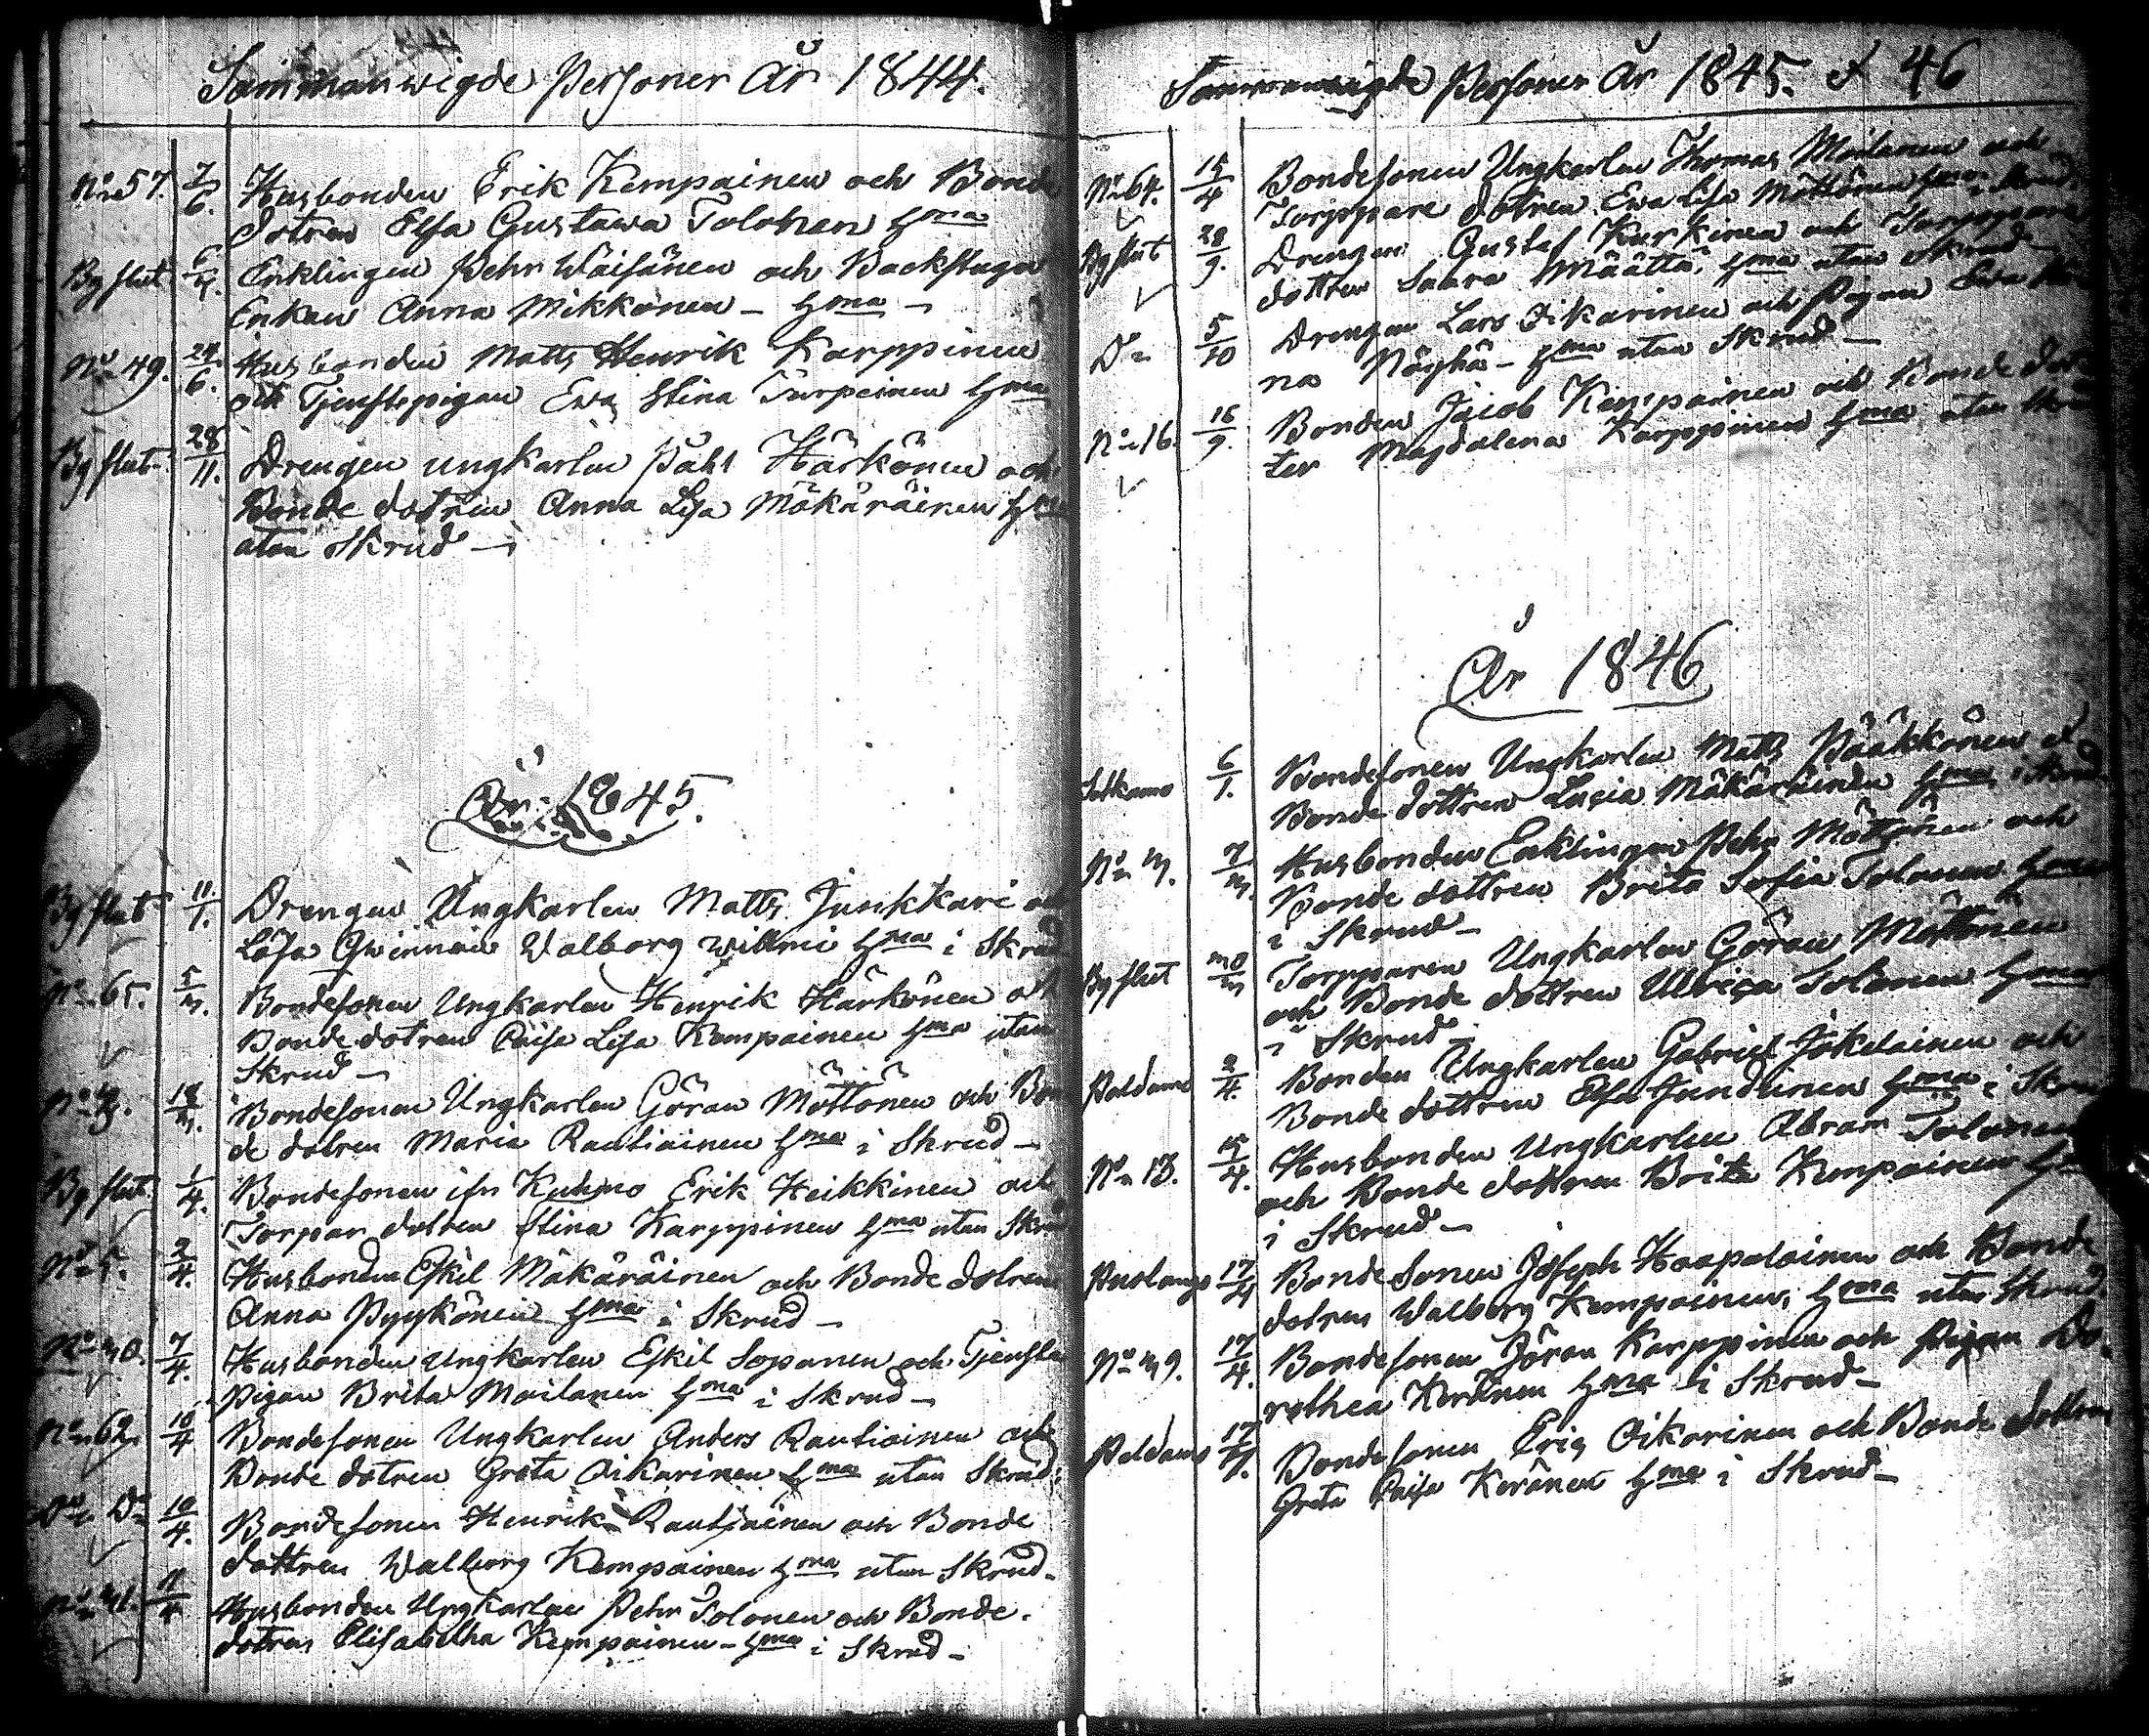 Sammanwigde Personer År 1844.
No 57. 7/6. Husbonden Erik Kempainen och Bonde
dotren Elsa Gustawa Tolonen hma
By slut Enklingen Pehr Wäisänen och Backstugu
Enkan Anna Mikkonen - hma -
No 49. 24/6. Husbonden Matts Henrik Karppinen
och Tjenstepigan Ewa Stina Turpeinen hma
By slut 28/11. Drengen ungkarlen Påhl Härkönen och
Bonde dotren Anna Lisa Mäkäräinen
utan Skrud -
År 1845.
By slut 11/1. Drengen Ungkarlen Matts Junkkari och
Lösa Qwinnan Walborg Willmi hma i Skrud
No 65. Bondesonen Ungkarlen Henrik Härkönen och
Bonde dotren Caisa Lisa Kempainen hma utan
Skrud -
Bondesonen Ungkarlen Göran Möttönen och Bon
de dotren Maria Rautiainen hma i Skrud -
By slut 1/4. Bondesonen ifr Kuhmo Erik Heikkinen och
Torpar dotren Stina Karppinen hma utan Skrud
No 5. 2/4. Husbonden Eskil Mäkäräinen och Bonde dotren
Anna Pyykönen hma i Skrud -
7/4. Husbonden Ungkarlen Eskil Soponen och Tjenste
pigan Brita Moilanen hma i Skrud -
No 62. 10/4 Bondesonen Ungkarlen Anders Rautiainen och
Bonde dotren Greta Oikarinen hma utan Skrud.
Do Do 10/4. Bondesonen Henrik Rautiainen och Bonde
dottren Walborg Kempainen hma utan Skrud -
11/4 Husbonden Ungkarlen Pehr Tolonen och Bonde
dotren Elisabetha Kempainen - hma i Skrud -
Sammanwigde Personer År 1845. & 46
No 64. 15/4 Bondesonen Ungkarlen Thomas Moilanen och
Torppare dotren Ewa Lisa Möttönen hma i Skrud.
By slut 28/9. Drengen Gustaf Kurkinen och Torppare
dottren Saara Määttä hma utan Skrud -
Do 5/10 Drengen Lars Oikarinen och Pigan Ewa
na - hma utan Skrud -
No 16. 16/9. Bonden Jacob Kempainen och Bonde dot
ter Magdalena Karppinen hma utan Skrud
År 1846
Sotkamo 6/1. Bondesonen Ungkarlen Matts Pääkkönen &
Bonde dottren Lusia Mäkäräinen hma i Skrud
Husbonden Enklingen Pehr Möttönen och
Bonde dottren Brita Sofia Tolonen hma
i Skrud -
By slut Torpparen Ungkarlen Göran Möttönen
och Bonde dottren Ulrica Tolonen hma
i Skrud -
Paldamo 2/4. Bonden Ungkarlen Gabriel Jokelainen och
Bonde dottren Elsa Juntunen hma i Skrud
No 13. 15/4. Husbonden Ungkarlen Abram Tolonen
och Bonde dottren Brita Kempainen
i Skrud -
17/4 Bonde Sonen Joseph Haapalainen och Bonde
dotren Walborg Kempainen hma utan Skrud.
17/4. Bondesonen Jöran Karppinen och Pigan Do
rothea Keränen hma i Skrud -
Paldamo 17/4. Bondesonen Eric Oikarinen och Bonde dottren
Greta Caisa Keränen hma i Skrud -